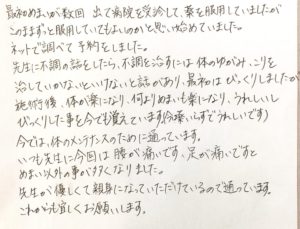 最初めまいが数回出て病院を受診して、薬を服用していましたが
このままずっと服用していてもよいのかと思い始めていました。
ネットで調べて予約をしました。
先生に不調の話をしたら、不調を治すには体のゆがみ、こりを
治していかないといけないと話があり、最初はびっくりしましたが
施術後、体が楽になり、何よりめまいも楽になり、うれしいし
びっくりした事を今でも覚えています(今薬いらずでうれしいです)
今では、体のメンテナンスのために通っています。
いつも先生に今回は腰が痛いです、足が痛いですと
めまい以外の事が多くなりました。
先生が優しくて親身になっていただけているので通っています。
これからも宜しくお願いします。